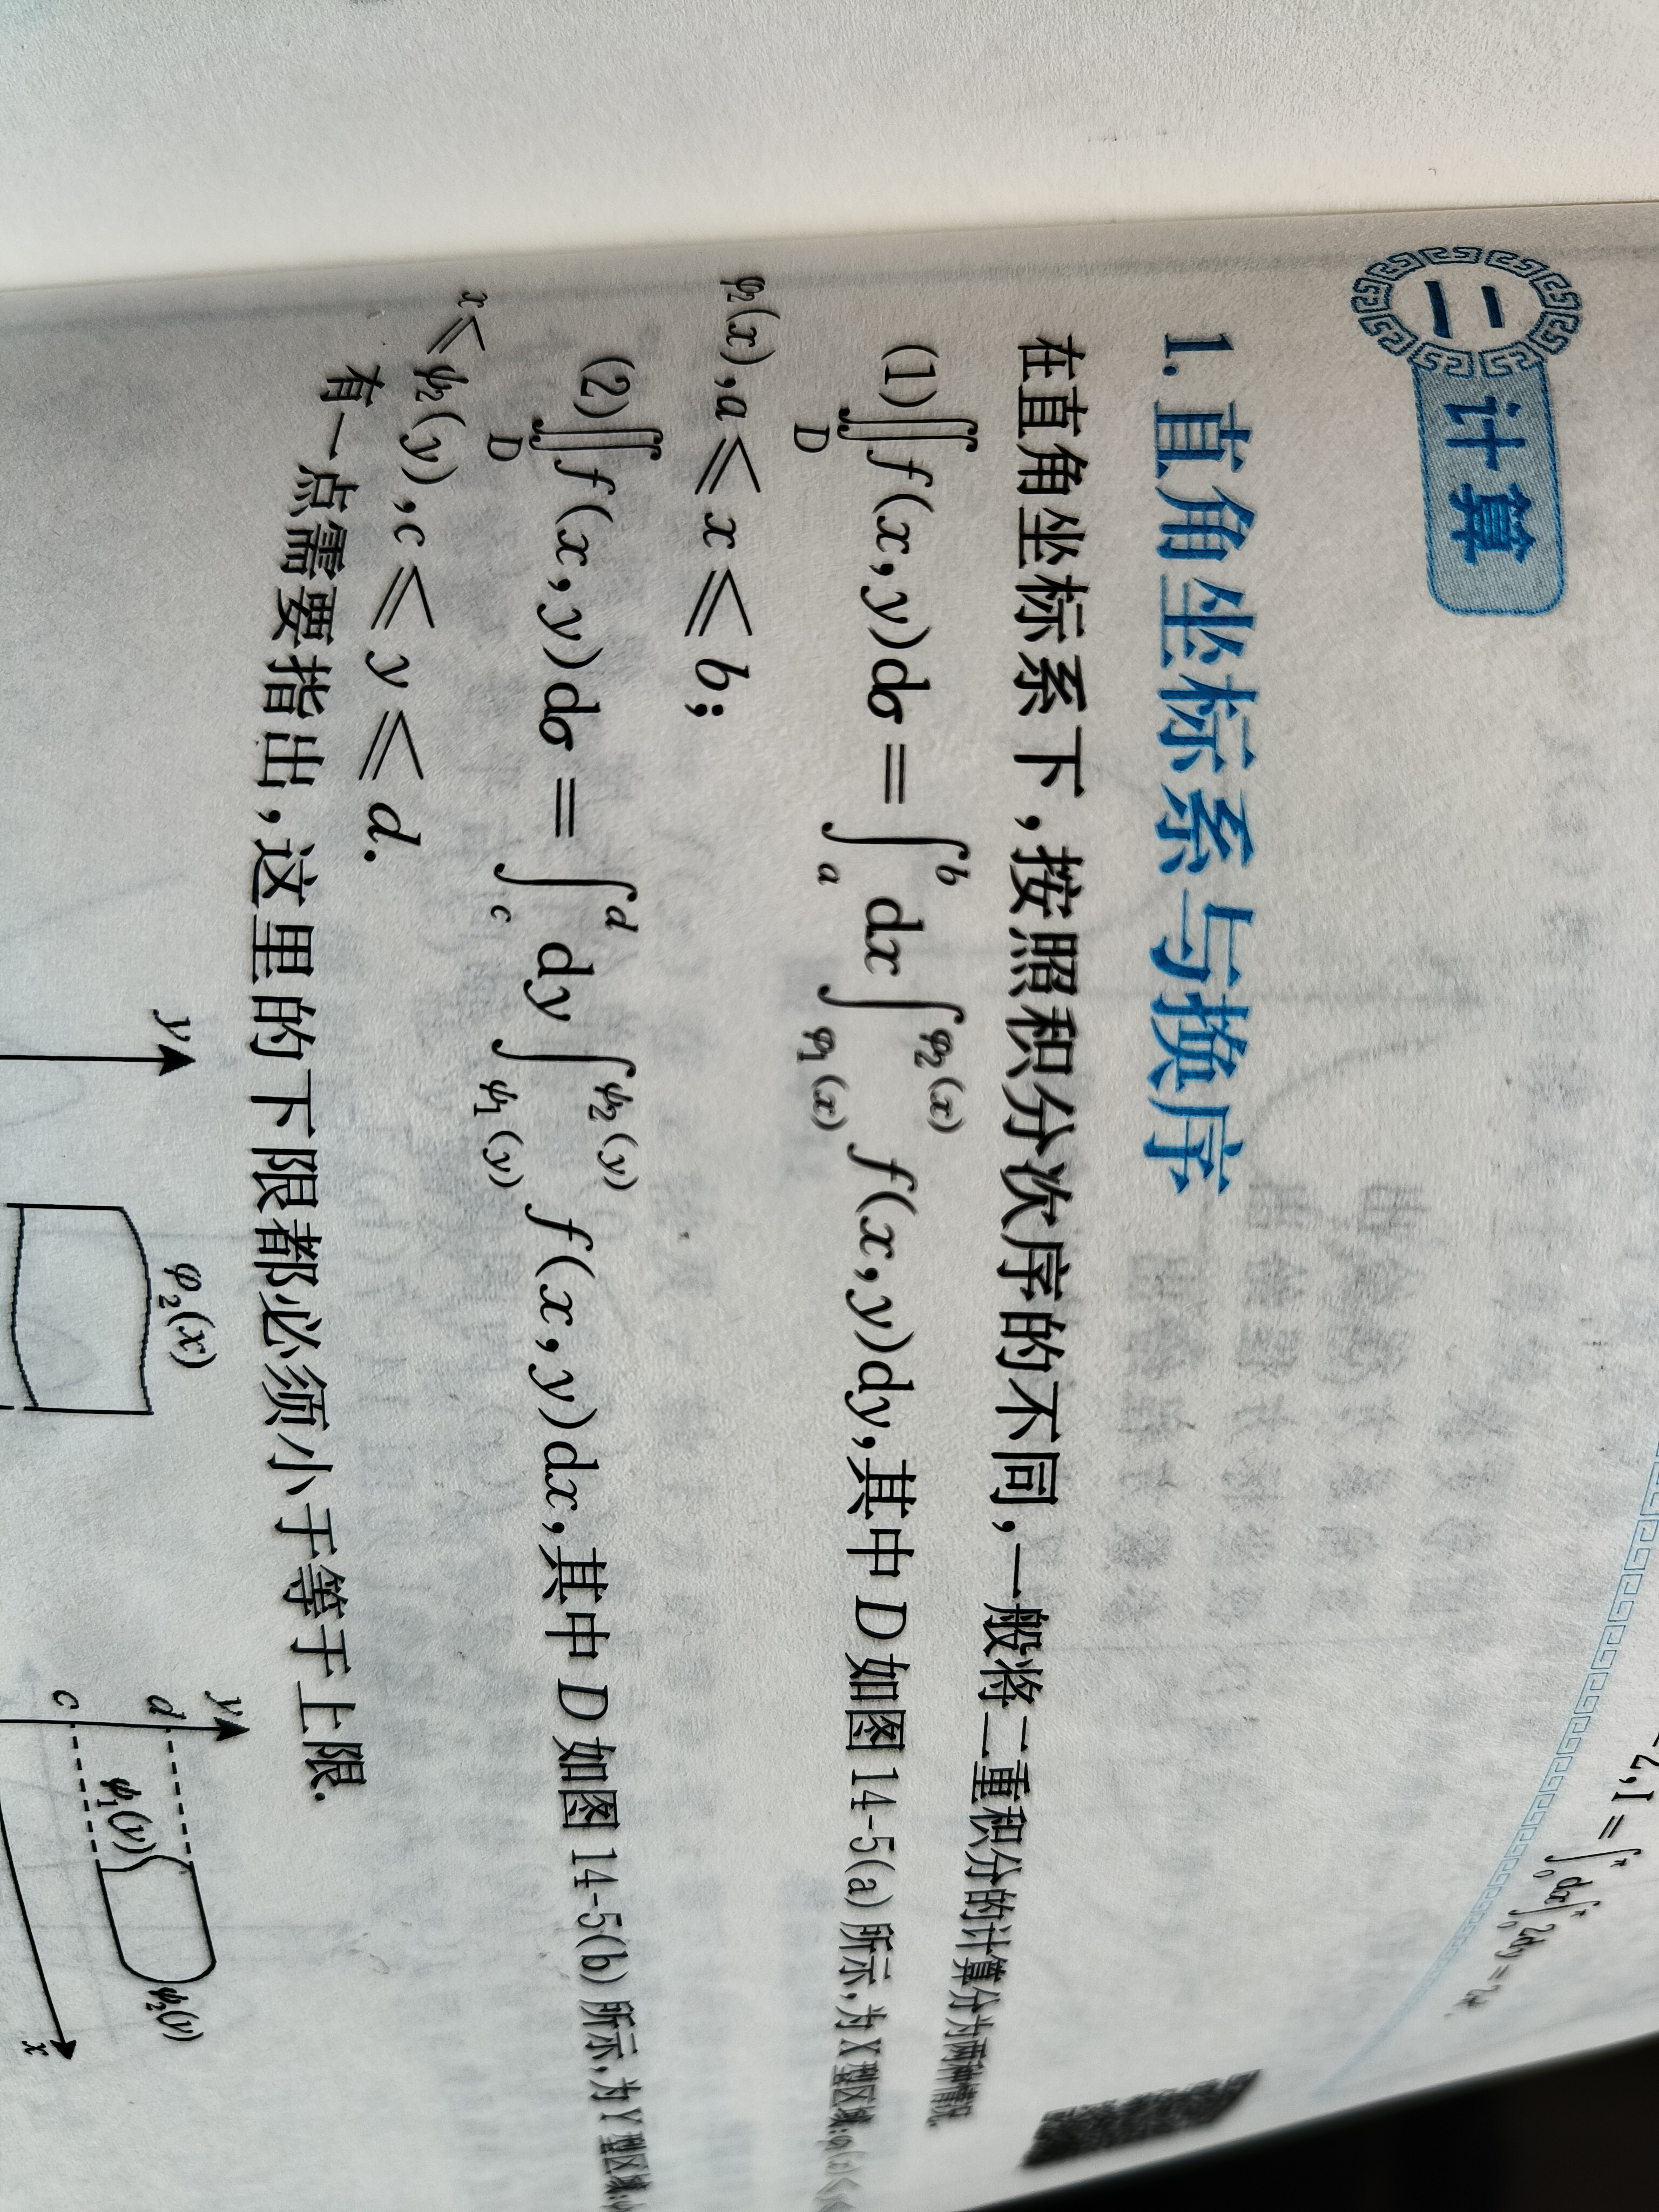 -2, I = ∫₀ˣ dx ∫₀ˣ 2dy = 2x.
二 计算
1. 直角坐标系与换序
在直角坐标系下,按照积分次序的不同,一般将二重积分的计算分为两种情况.
(1)∬_D f(x,y)dσ = ∫_a^b dx ∫_{φ₁(x)}^{φ₂(x)} f(x,y)dy,其中 D 如图 14-5(a)所示,为 X 型区域:φ₁(x) ≤
φ₂(x),a ≤ x ≤ b;
(2)∬_D f(x,y)dσ = ∫_c^d dy ∫_{ψ₁(y)}^{ψ₂(y)} f(x,y)dx,其中 D 如图 14-5(b)所示,为 Y 型区域:
x ≤ ψ₂(y),c ≤ y ≤ d.
有一点需要指出,这里的下限都必须小于等于上限.
y
φ₂(x)
y
d
c
ψ₁(y)
ψ₂(y)
x